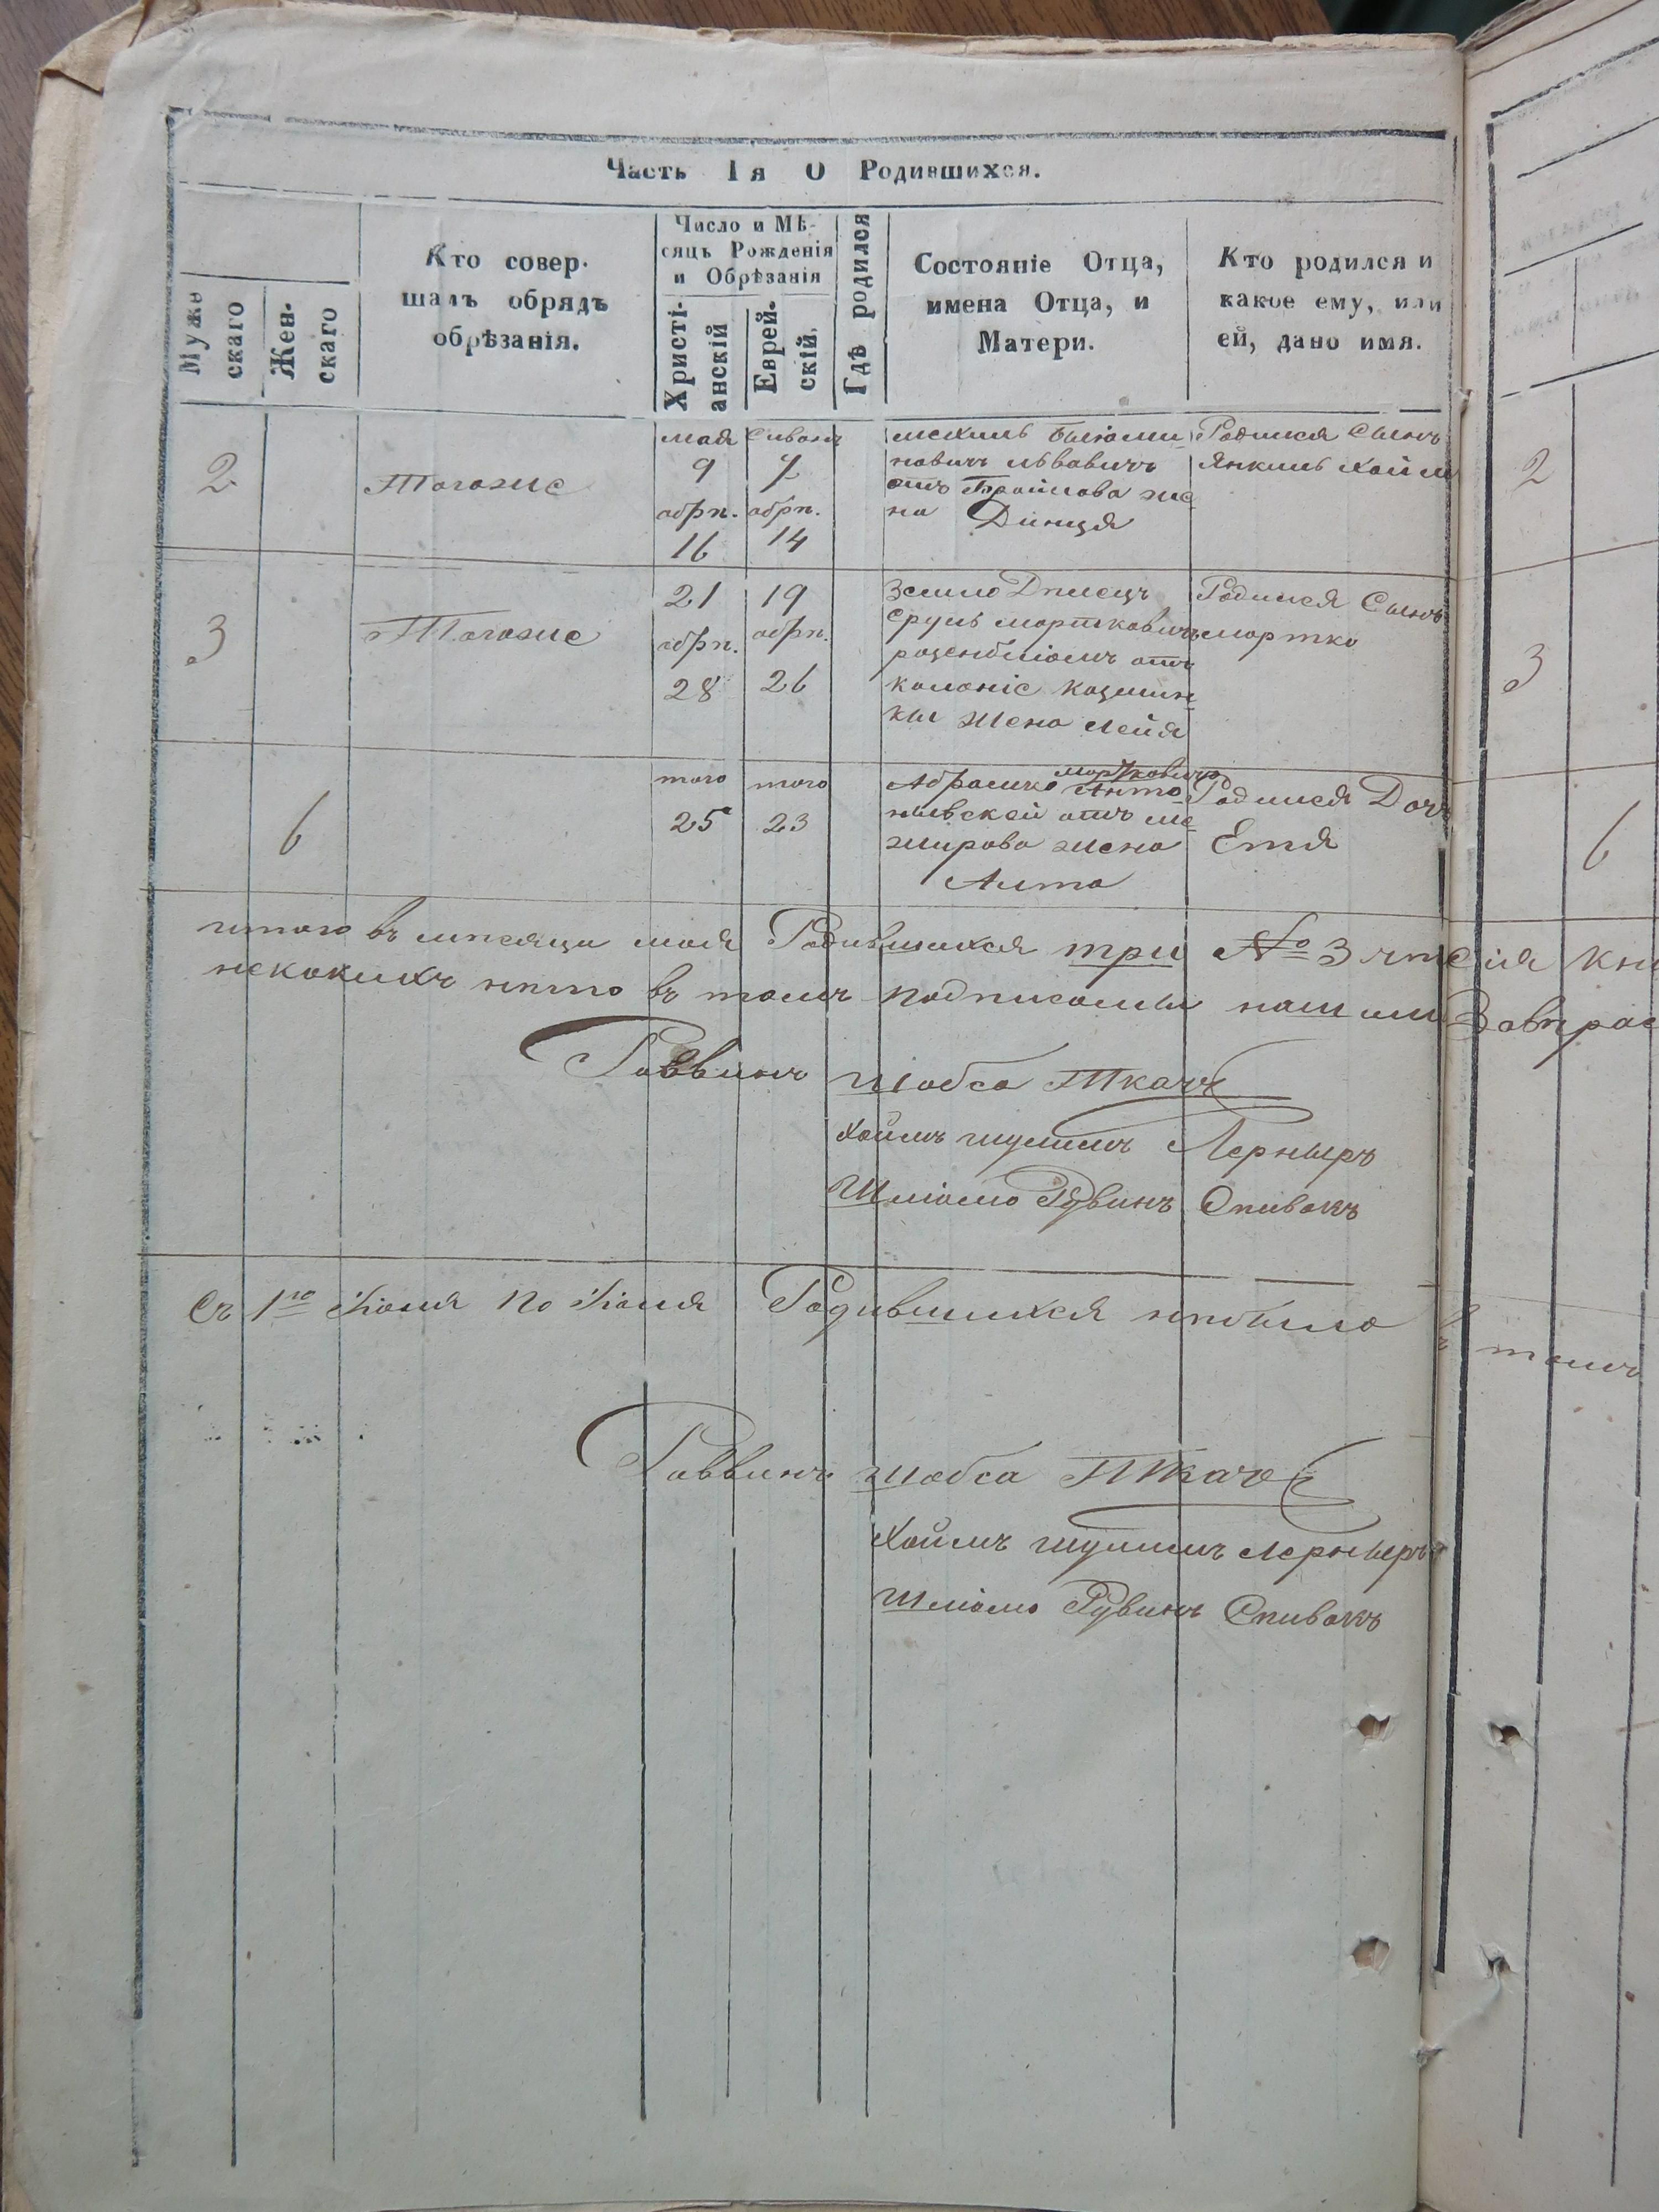 Часть 1я О Родившихся.
Мужескаго
Женскаго
Кто совер-
шалъ обрядъ
обрѣзанія.
Число и Мѣ-
сяцъ Рожденія
и Обрѣзанія
Христі-
анскій
Еврей-
скій.
Гдѣ родился
Состояніе Отца,
имена Отца, и
Матери.
Кто родился и
какое ему, или
ей, дано имя.
2
Тогоже
мая
9
обрѣ.
16
Сивона
7
обрѣ.
14
мехиль
новичъ львовичъ
отъ Браилова же
на Динця
Родился Сынъ
Янкиль Хаим
2
3
Тогоже
21
обрѣ.
28
19
обрѣ.
26
земло Дѣлецъ
Сруль мортковичъ
розенблюмъ отъ
колоніе
жена Лейя
Родился Сынъ
мортко
3
6
того
25
того
23
Абрамко мортковичъ
отъ ме
жирова жена
Алта
Родился Доч
Етя
6
итого въ мѣсяци мая Родившихся три № 3 что сія кни
некокихъ нѣтто въ томъ подписомы нашими
Раввинъ шобса Ткачъ
Хаимъ шулимъ Лерныръ
Шліомо Рувинъ Спивакъ
Съ 1го Іюня по Іюля Родившихся нѣбыло
въ томъ
Раввинъ шобса Ткачъ
Хаимъ шулимъ Лерныръ
Шліомо Рувинъ Спивакъ